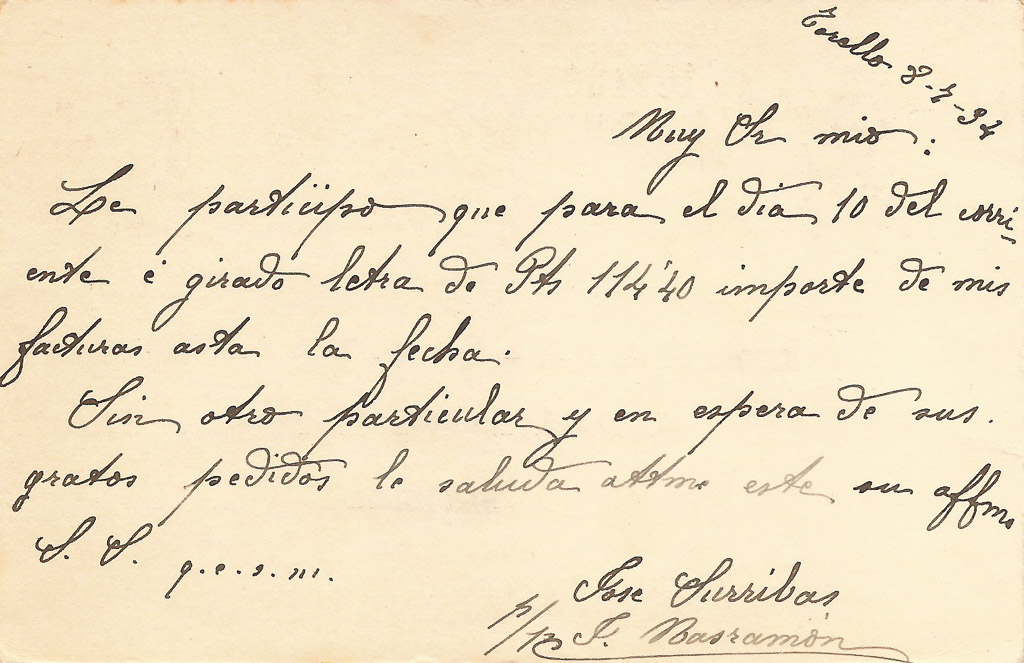 Torello 8-7-94
Muy Sr mio:
Le participo que para el dia 10 del corri-
ente é girado letra de Pts 114'40 importe de mis
facturas asta la fecha.
Sin otro particular y en espera de sus.
gratos pedidos le saluda attme este su affmo
S. S. q.e.s.m.
Jose Surribas
p/p F. Masramón